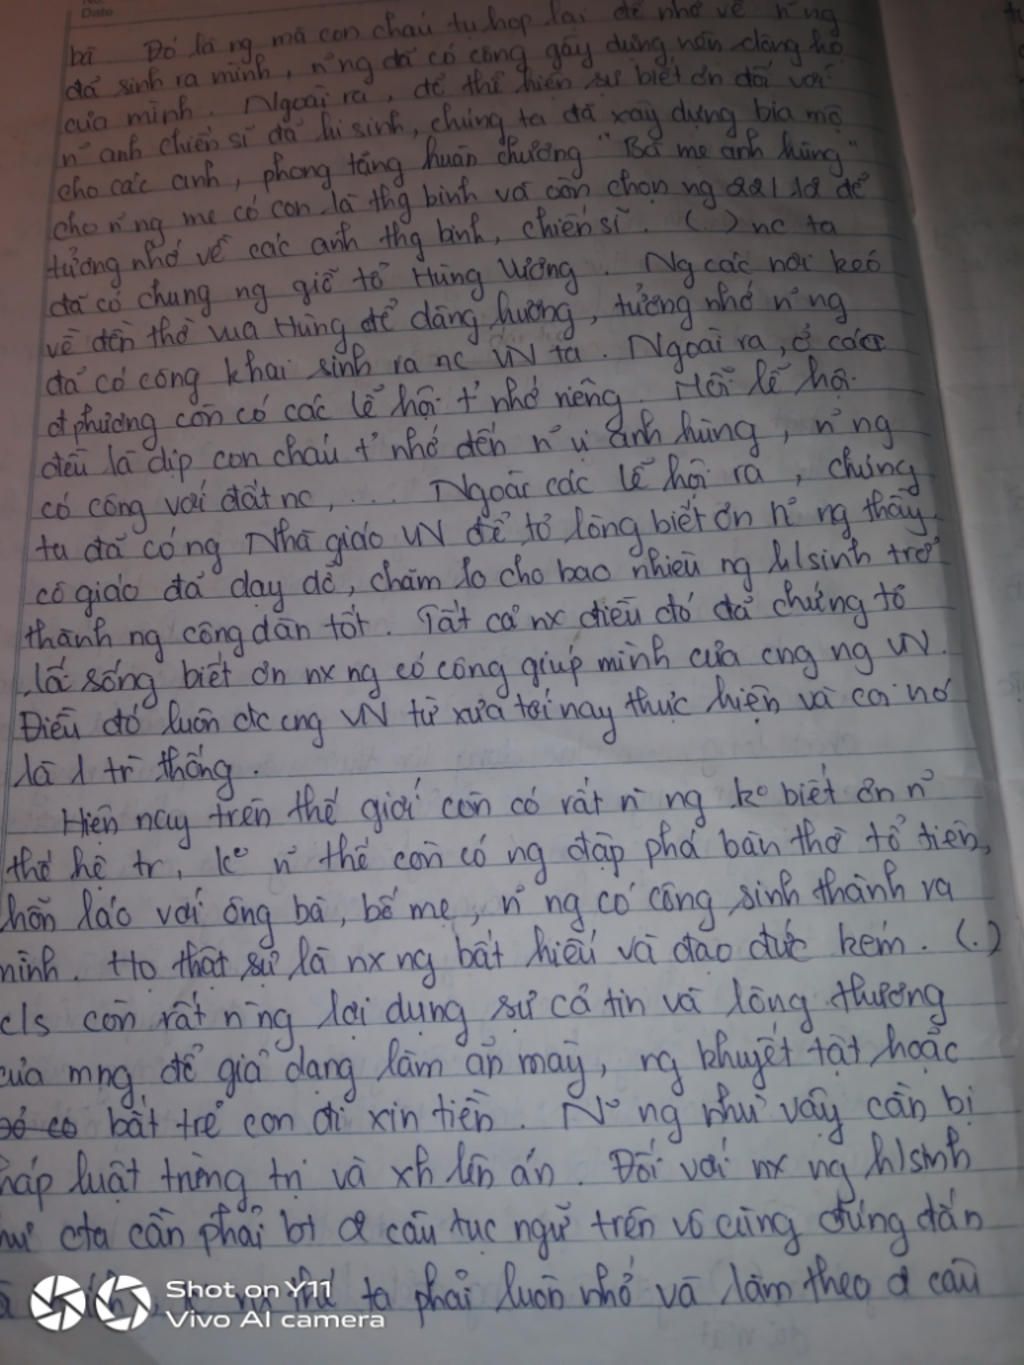 Date
bà Đó là ng mà con cháu tụ họp lại để nhớ về n~ng
đã sinh ra mình, n~ng đã có công gây dựng nên dòng họ
của mình. Ngoài ra, để thể hiện sự biết ơn đối với
n~ anh chiến sĩ đã hi sinh, chúng ta đã xây dựng bia mộ
cho các anh, phong tặng huân chương "Bà mẹ anh hùng"
cho n~ng mẹ có con là thg binh và còn chọn ng 22/12 để
tưởng nhớ về các anh thg binh, chiến sĩ. (.) nc ta
đã có chung ng giỗ tổ Hùng Vương. Ng các nơi kéo
về đền thờ vua Hùng để dâng hương, tưởng nhớ n~ng
đã có công khai sinh ra nc VN ta. Ngoài ra, ở các
đphương còn có các lễ hội t' nhớ riêng. Mỗi lễ hội
đều là dịp con cháu t' nhớ đến n~ vị anh hùng, n~ng
có công với đất nc, ... Ngoài các lễ hội ra, chúng
ta đã có ng Nhà giáo VN để tỏ lòng biết ơn n~ng thầy
cô giáo đã dạy dỗ, chăm lo cho bao nhiêu ng h/sinh trở
thành ng công dân tốt. Tất cả nx điều đó đã chứng tỏ
lối sống biết ơn nx ng có công giúp mình của cng ng VN.
Điều đó luôn đc cng VN từ xưa tới nay thực hiện và coi nó
là 1 tr~ thống.
Hiện nay trên thế giới còn có rất n` ng ko biết ơn n~
thế hệ tr, ko n~ thế còn có ng đập phá bàn thờ tổ tiên,
hỗn láo với ông bà, bố mẹ, n~ng có công sinh thành ra
mình. Họ thật sự là nx ng bất hiếu và đạo đức kém. (.)
c/s còn rất n`ng lợi dụng sự cả tin và lòng thương
của mng để giả dạng làm ăn mày, ng khuyết tật hoặc
bắt trẻ con đi xin tiền. N~ng như vậy cần bị
pháp luật trừng trị và xh lên án. Đối với nx ng h/sinh
như cta cần phải bt đ câu tục ngữ trên vô cùng đúng đắn
ta phải luôn nhớ và làm theo đ câu
Shot on Y11
Vivo AI camera